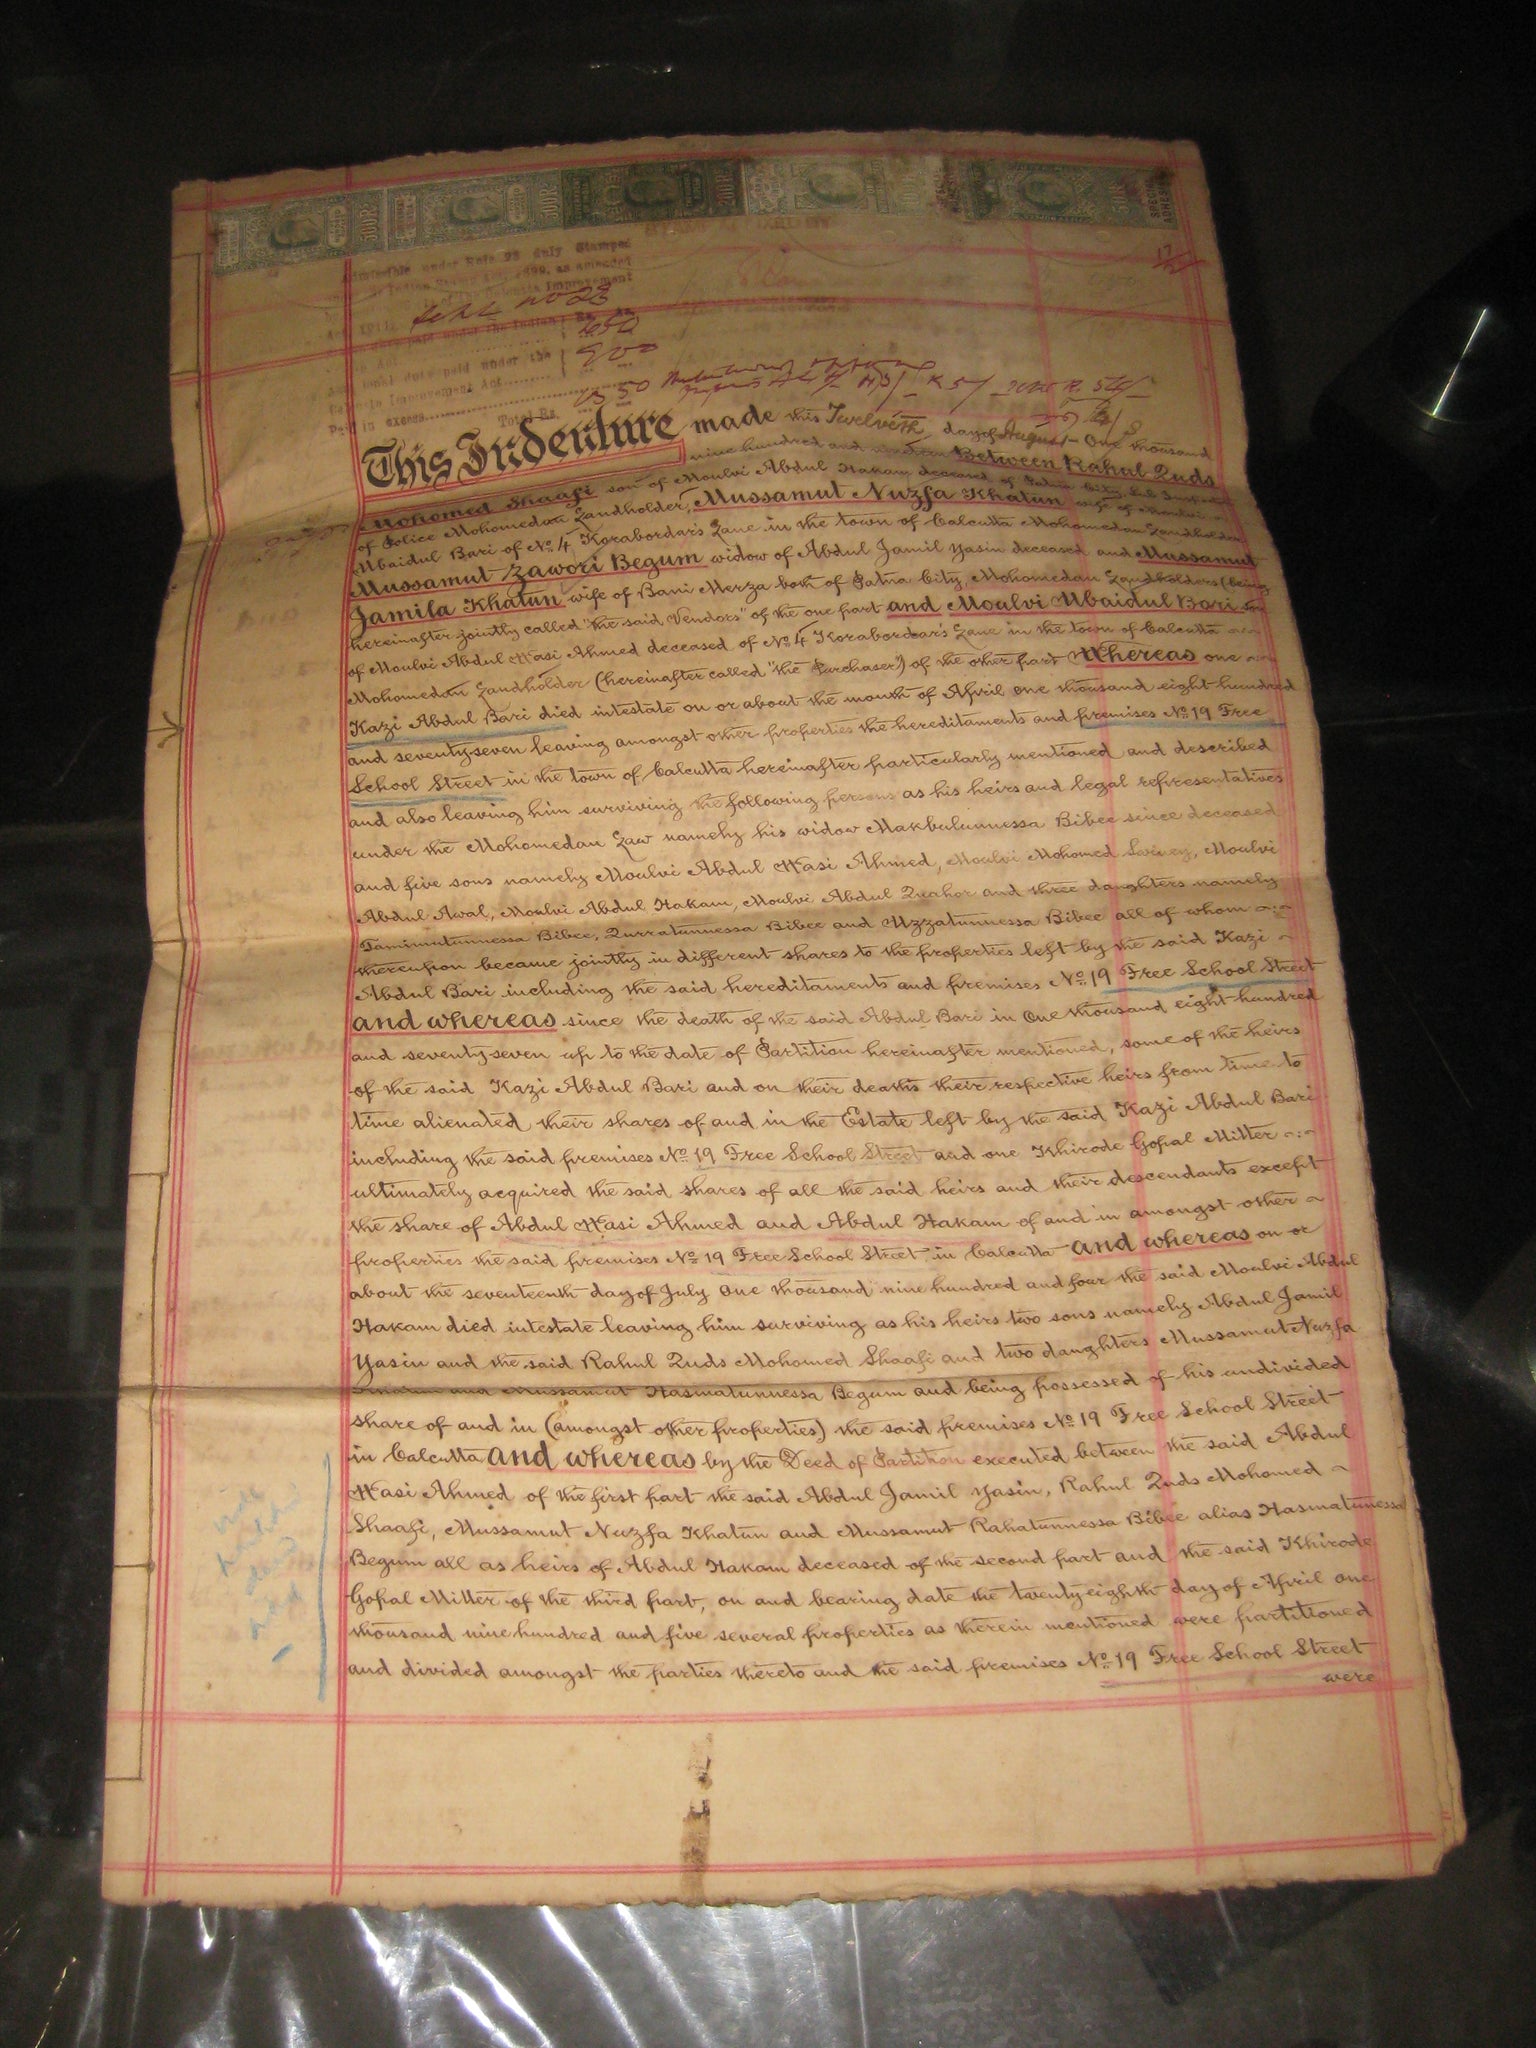 500 RS
500 RS
200 RS
SPECIAL ADHESIVE
17
under Rule 23 duly Stamped
Indian Stamp Act, 1899, as amended
Calcutta Improvement
paid under the Indian
Act
duty paid under the
Improvement Act
Paid in excess
Total Rs.
This Indenture made this Twelveth day of August One thousand
nine hundred and Between Rahul Quds
Mohomed Shaafi son of Moulvi Abdul Hakam deceased of Patna City, Sub Inspector
of Police Mohomedan Landholder, Mussamut Nuzfa Khatun wife of Moulvi
Ubaidul Bari of No. 4 Korabordar's Lane in the town of Calcutta Mohomedan Landholder
Mussamut Zawori Begum widow of Abdul Jamil Yasin deceased and Mussamut
Jamila Khatun wife of Bani Merza both of Patna City, Mohomedan Landholders (being
hereinafter jointly called "the said Vendors" of the one part and Moulvi Ubaidul Bari son
of Moulvi Abdul Wasi Ahmed deceased of No. 4 Korabordar's Lane in the town of Calcutta
Mohomedan Landholder (hereinafter called "the Purchaser") of the other part Whereas one
Kazi Abdul Bari died intestate on or about the month of April one thousand eight hundred
and seventy-seven leaving amongst other properties the hereditaments and premises No. 19 Free
School Street in the town of Calcutta hereinafter particularly mentioned and described
and also leaving him surviving the following persons as his heirs and legal representatives
under the Mohomedan Law namely his widow Makbulunnessa Bibee since deceased
and five sons namely Moulvi Abdul Wasi Ahmed, Moulvi Mohomed , Moulvi
Abdul Awal, Moulvi Abdul Hakam, Moulvi Abdul Quahor and three daughters namely
Tamimutunnessa Bibee, Qurratunnessa Bibee and Uzzatunnessa Bibee all of whom
thereupon became jointly in different shares to the properties left by the said Kazi
Abdul Bari including the said hereditaments and premises No. 19 Free School Street
and whereas since the death of the said Abdul Bari in One thousand eight hundred
and seventy-seven up to the date of Partition hereinafter mentioned, some of the heirs
of the said Kazi Abdul Bari and on their deaths their respective heirs from time to
time alienated their shares of and in the Estate left by the said Kazi Abdul Bari
including the said premises No. 19 Free School Street and one Khirode Gopal Mitter
ultimately acquired the said shares of all the said heirs and their descendants except
the share of Abdul Wasi Ahmed and Abdul Hakam of and in amongst other
properties the said premises No. 19 Free School Street in Calcutta and whereas on or
about the seventeenth day of July One thousand nine hundred and four the said Moulvi Abdul
Hakam died intestate leaving him surviving as his heirs two sons namely Abdul Jamil
Yasin and the said Rahul Quds Mohomed Shaafi and two daughters Mussamut Nuzfa
Khatun and Mussamut Hasmatunnessa Begum and being possessed of his undivided
share of and in (amongst other properties) the said premises No. 19 Free School Street
in Calcutta and whereas by the Deed of Partition executed between the said Abdul
Wasi Ahmed of the first part the said Abdul Jamil Yasin, Rahul Quds Mohomed
Shaafi, Mussamut Nuzfa Khatun and Mussamut Rahatunnessa Bibee alias Hasmatunnessa
Begum all as heirs of Abdul Hakam deceased of the second part and the said Khirode
Gopal Mitter of the third part, on and bearing date the twenty eighth day of April one
thousand nine hundred and five several properties as therein mentioned were partitioned
and divided amongst the parties thereto and the said premises No. 19 Free School Street
were
vide
deed